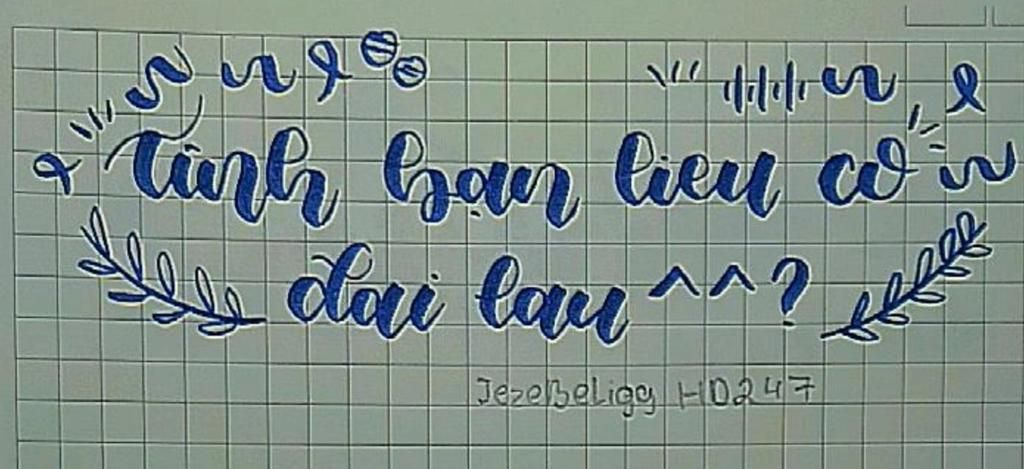 Tình bạn lieu cơ
dai lau ^^?
JezeBeLigg HD247